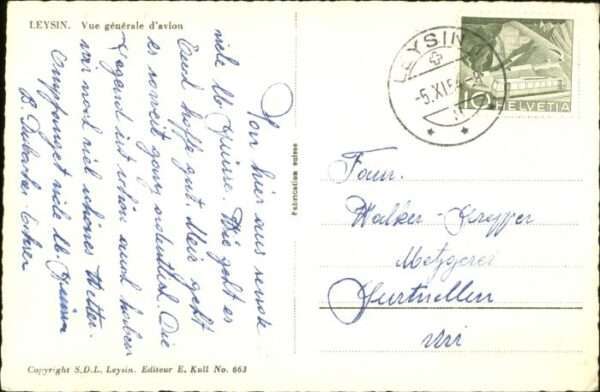 LEYSIN. Vue générale d'avion
Von hier aus sende
viele lb. Grüsse. Wie geht es
Euch hoffe gut. Mir geht
es soweit ganz ordentlich. Die
Gegend ist schön auch haben
wir noch viel schönes Wetter.
Empfanget viele lb. Grüsse
B.
Fabrication suisse
LEYSIN
-5.XI.54
10
HELVETIA
Fam.
Walker-Gnepper
Metzgerei
Gurtnellen
Uri
Copyright S.D.L. Leysin. Editeur E. Kull No. 663